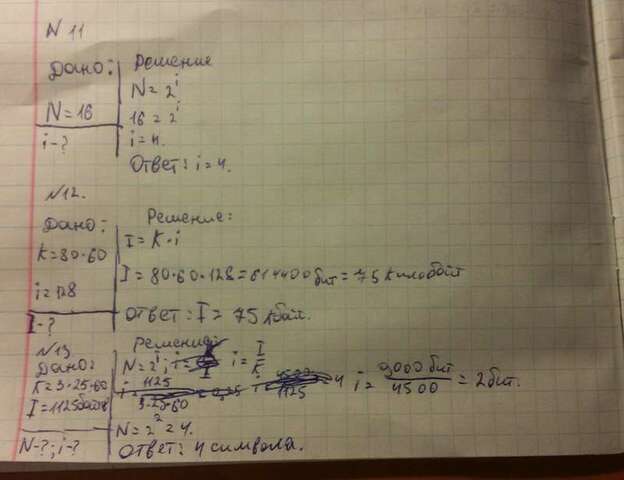 N 11
Дано:
N=16
i-?
Решение
N=2^i
16=2^i
i=4.
Ответ: i=4.
N12.
Дано:
K=80·60
i=128
I-?
Решение:
I=K·i
I=80·60·128=614400бит=75Килобайт
Ответ: I=75кбайт.
N13
Дано:
K=3·25·60
I=1125байт
N-?; i-?
Решение:
N=2^i; i=I/K
i=9000бит/4500=2бит.
N=2^2=4.
Ответ: 4 символа.